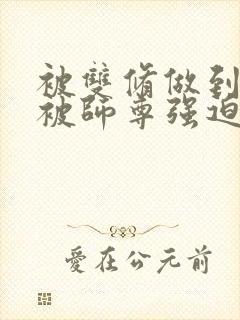 被雙脩做到
被師尊强迫
愛在公元前